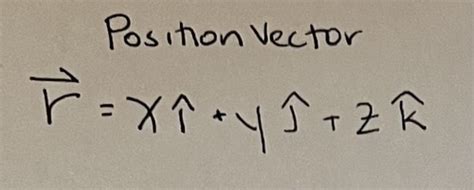 Position Vector
r⃗ = xî + yĵ + zk̂